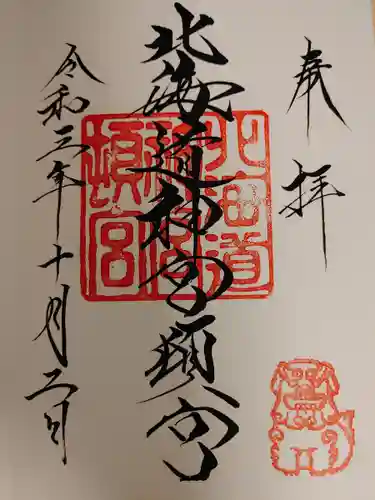 奉拝
北海道神宮頓宮
北海道
神宮
頓宮
令和三年十月二日